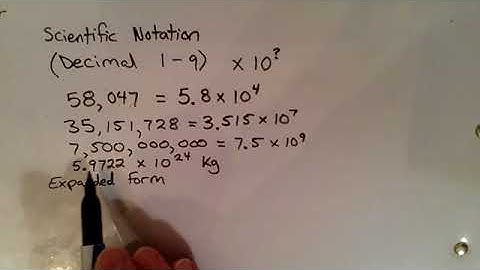 Scientific Notation
(Decimal 1-9) x 10?
58,047 = 5.8 x 10⁴
35,151,728 = 3.515 x 10⁷
7,500,000,000 = 7.5 x 10⁹
5.9722 x 10²⁴ kg
Expanded form